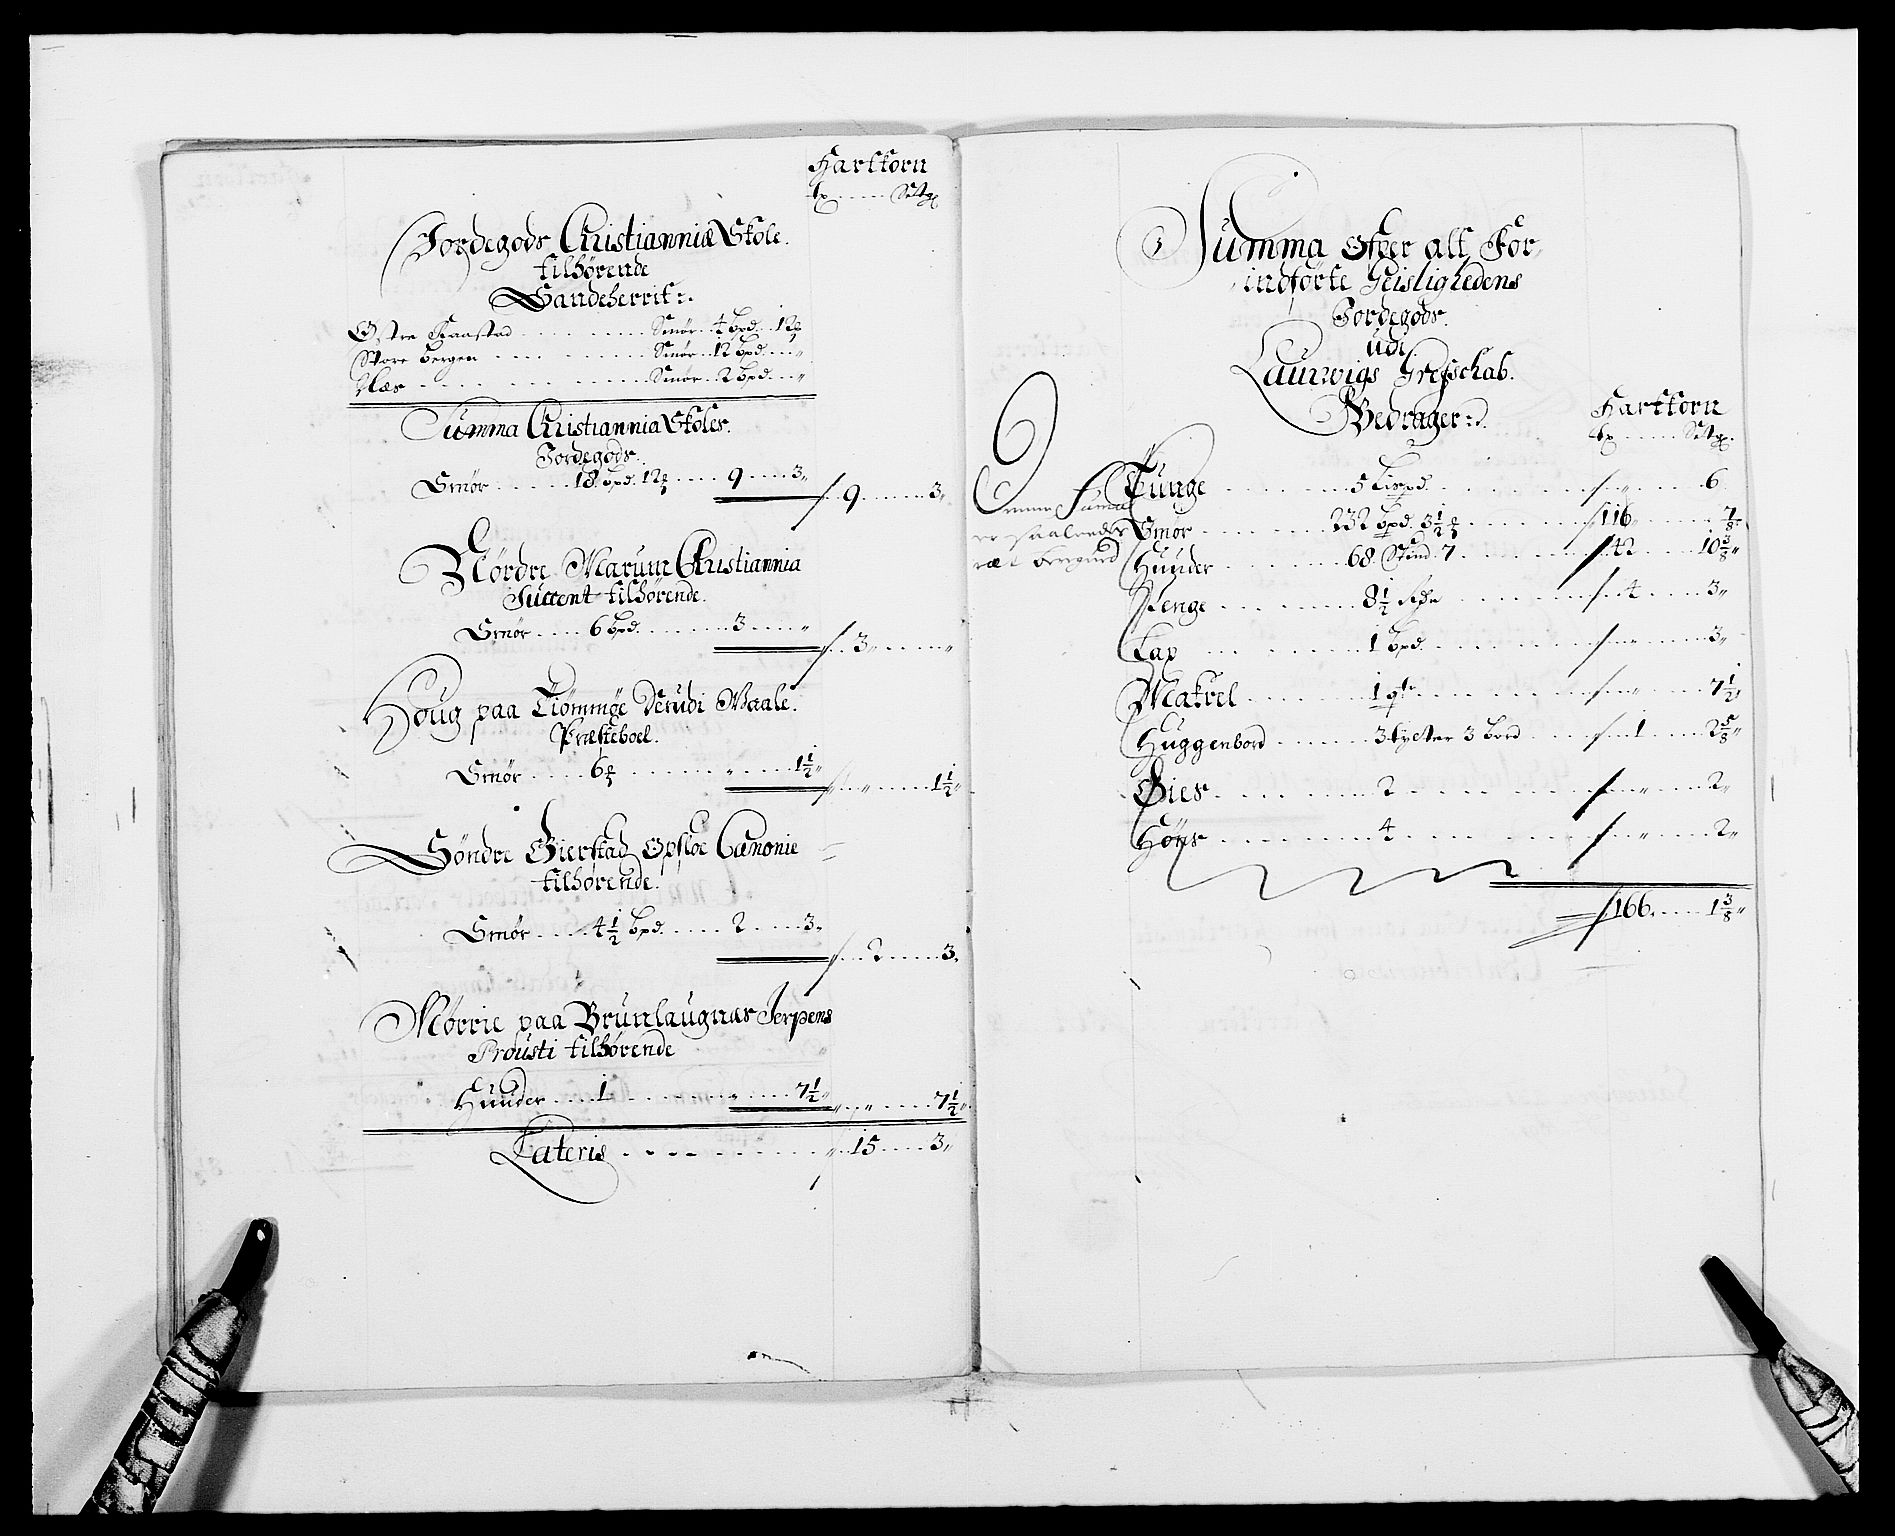 Hartkorn
Jordegods Christianniæ Skole
tilhørende
Sandeherrit
Østre Raastad Smør 4 bpd 12
Store Bergen Smør 12 bpd
Næs Smør 2 bpd
Summa Christiannia Skoles
Jordegods
Smør 18 bpd 12 9 3 9 3
Nordre Marum Christiannia
tilhørende
Smør 6 bpd 3 3
Houg paa Tiømmøe Sem udi Waale
Præsteboel
Smør 6 1½ 1½
Søndre Gierstad Opsloe Canonie
tilhørende
Smør 4½ bpd 2 3 2 3
Mørrie paa Brunlaugnæs Jerpens
Prousti tilhørende
Huuder 1 7½ 7½
Lateris 15 3
Summa Ofver alt For
indførte Geislighedens
Jordegods
udi
Laurwigs Grefschab
Bedrager
Hartkorn
Denne Suma
er saaledes
ræt
Tunge 5 Lispd 6
Smør 232 bpd 3½ 116 7/8
Huuder 68 7 42 10 3/8
Penge 8½ 4 3
Lax 1 bpd 3
Makrel 1 7½
Huggenbord 3 tylter 3 bord 1 2 5/8
Gies 2 2
Høns 4 2
166 1 3/8